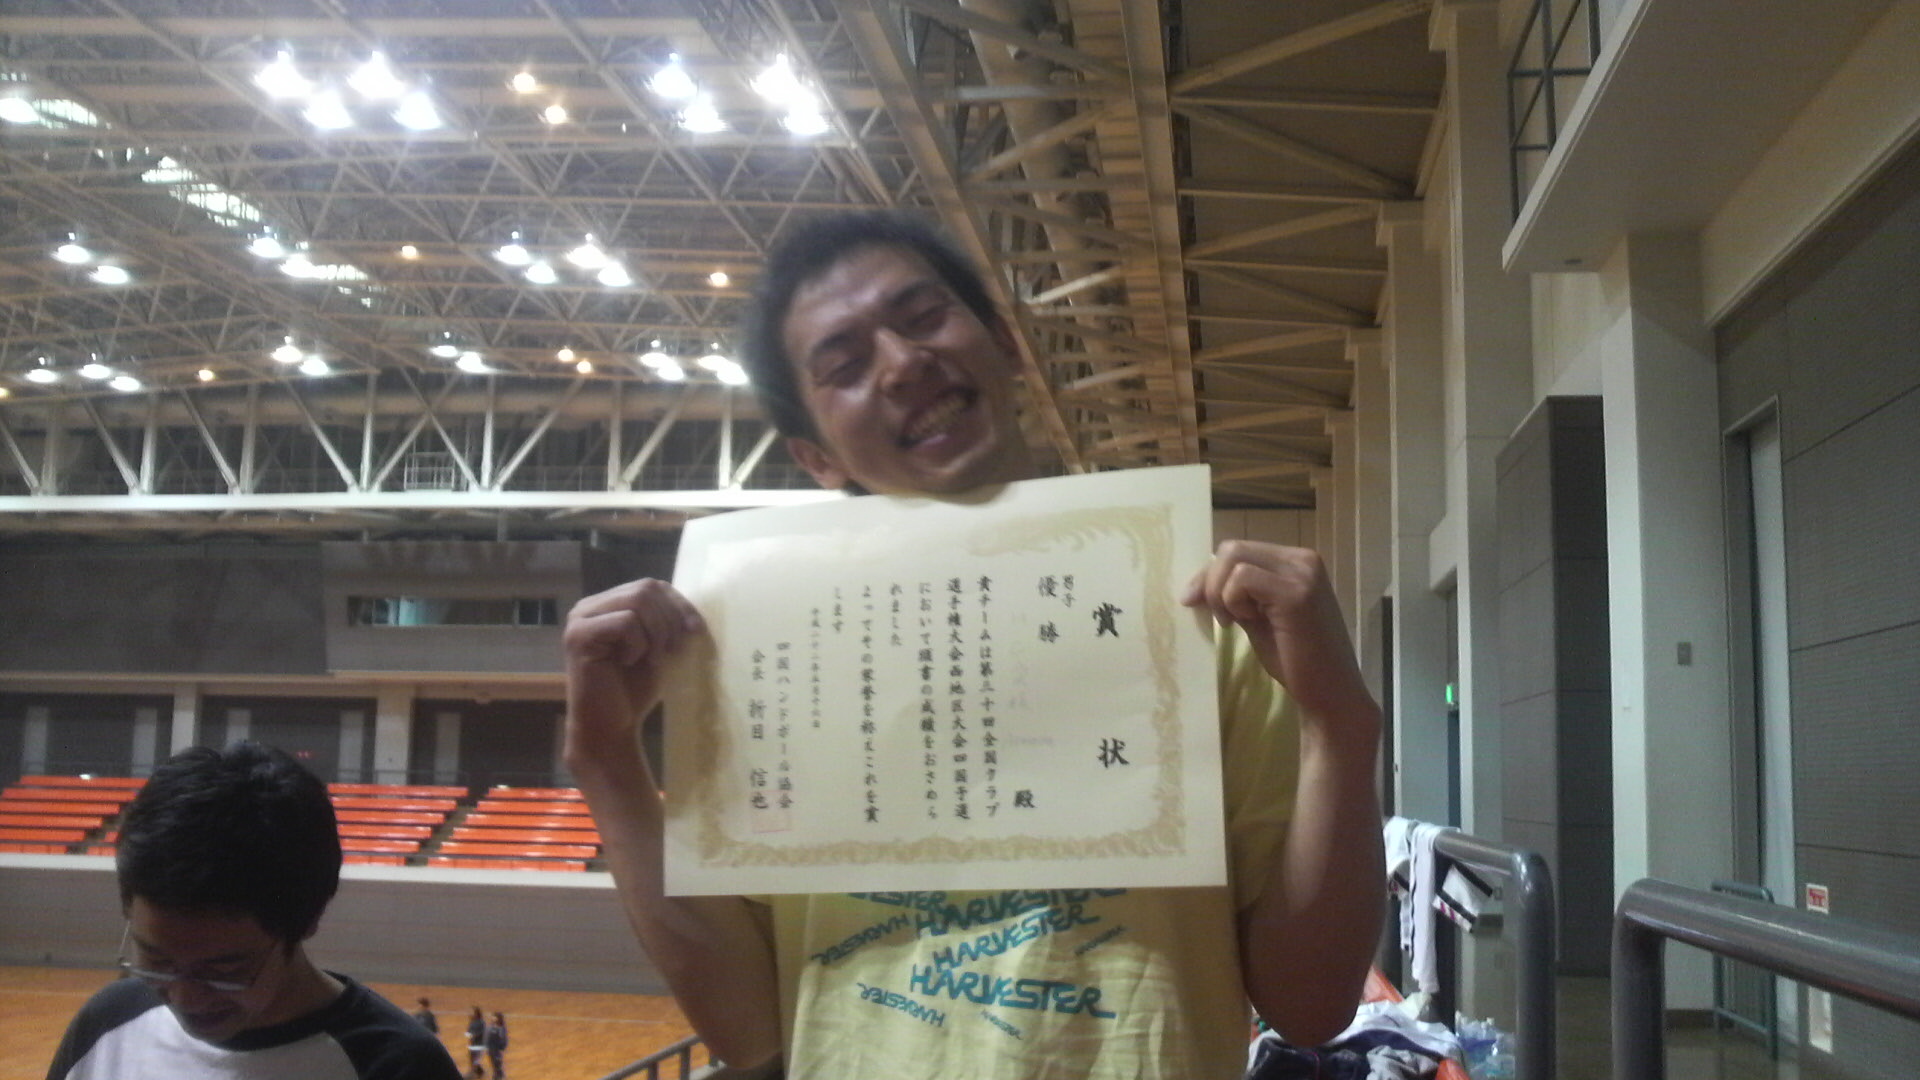 賞状
男子
優勝
殿
貴チームは第三十回全国クラブ
選手権大会西地区大会四国予選
において頭書の成績をおさめら
れました
よってその栄誉を称えこれを賞
します
平成二十二年五月十六日
四国ハンドボール協会
会長 折目 信也
HARVESTER
HARVESTER
HARVESTER
HARVESTER
HARVESTER